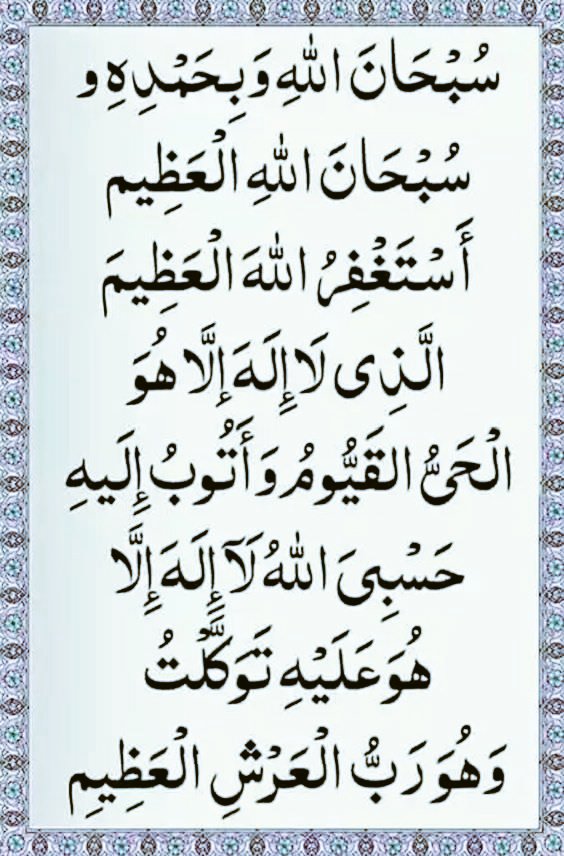 سُبْحَانَ اللهِ وَبِحَمْدِهِ و
سُبْحَانَ اللهِ الْعَظِيم
أَسْتَغْفِرُ اللهَ الْعَظِيمَ
الَّذِى لَا إِلَهَ إلَّا هُوَ
الْحَىُّ القَيُّومُ وَأَتُوبُ إِلَيهِ
حَسْبِىَ اللهُ لَآ إِلَهَ إِلَّا
هُوَ عَلَيْهِ تَوَكَّلْتُ
وَهُوَ رَبُّ الْعَرْشِ الْعَظِيمِ